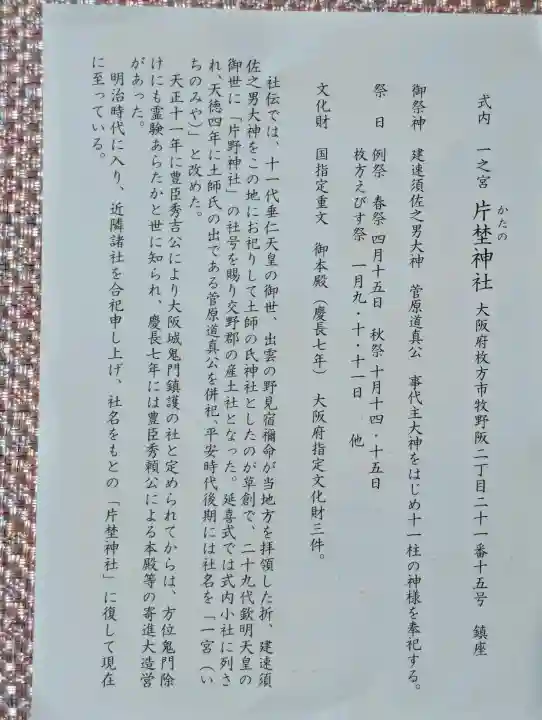 式内 一之宮 片埜神社 大阪府枚方市牧野阪二丁目二十一番十五号 鎮座
かたの
御祭神 建速須佐之男大神 菅原道真公 事代主大神をはじめ十一柱の神様を奉祀する。
祭 日 例祭 春祭 四月十五日 秋祭 十月十四・十五日
枚方えびす祭 一月九・十・十一日 他
文化財 国指定重文 御本殿(慶長七年) 大阪府指定文化財三件。
社伝では、十一代垂仁天皇の御世、出雲の野見宿禰命が当地方を拝領した折、建速須
佐之男大神をこの地にお祀りして土師の氏神社としたのが草創で、二十九代欽明天皇の
御世に「片野神社」の社号を賜り交野郡の産土社となった。延喜式では式内小社に列さ
れ、天徳四年に土師氏の出である菅原道真公を併祀、平安時代後期には社名を「一宮(い
ちのみや)」と改めた。
天正十一年に豊臣秀吉公により大阪城鬼門鎮護の社と定められてからは、方位鬼門除
けにも霊験あらたかと世に知られ、慶長七年には豊臣秀頼公による本殿等の寄進大造営
があった。
明治時代に入り、近隣諸社を合祀申し上げ、社名をもとの「片埜神社」に復して現在
に至っている。